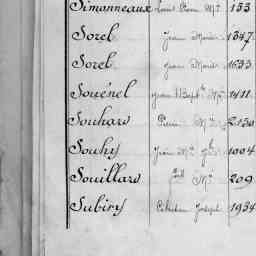 Simanneaux Louis Pierre Mie 153
Sorel Jean Marie 1347
Sorel Jean Marie 1633
Souénel Jean Bapte Mie 1411
Souhars Pierre Mie 2130
Souhy Jean Mie 1004
Souillars Mie 209
Subiry Joseph 1934